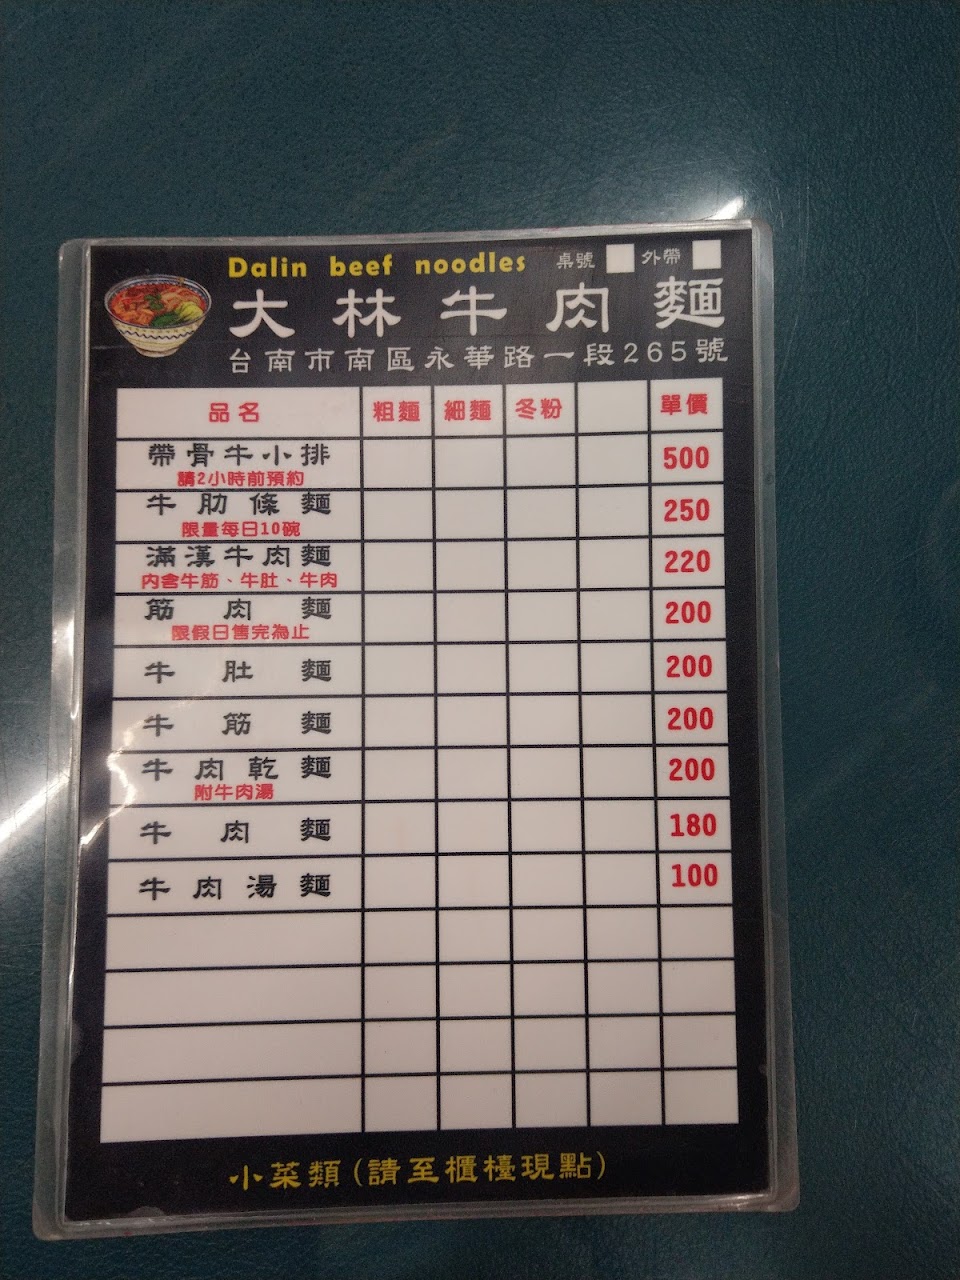 Dalin beef noodles 桌號 外帶
大林牛肉麵
台南市南區永華路一段265號
品名 粗麵 細麵 冬粉 單價
帶骨牛小排 500
請2小時前預約
牛肋條麵 250
限量每日10碗
滿漢牛肉麵 220
內含牛筋、牛肚、牛肉
筋肉麵 200
限假日售完為止
牛肚麵 200
牛筋麵 200
牛肉乾麵 200
附牛肉湯
牛肉麵 180
牛肉湯麵 100
小菜類(請至櫃檯現點)